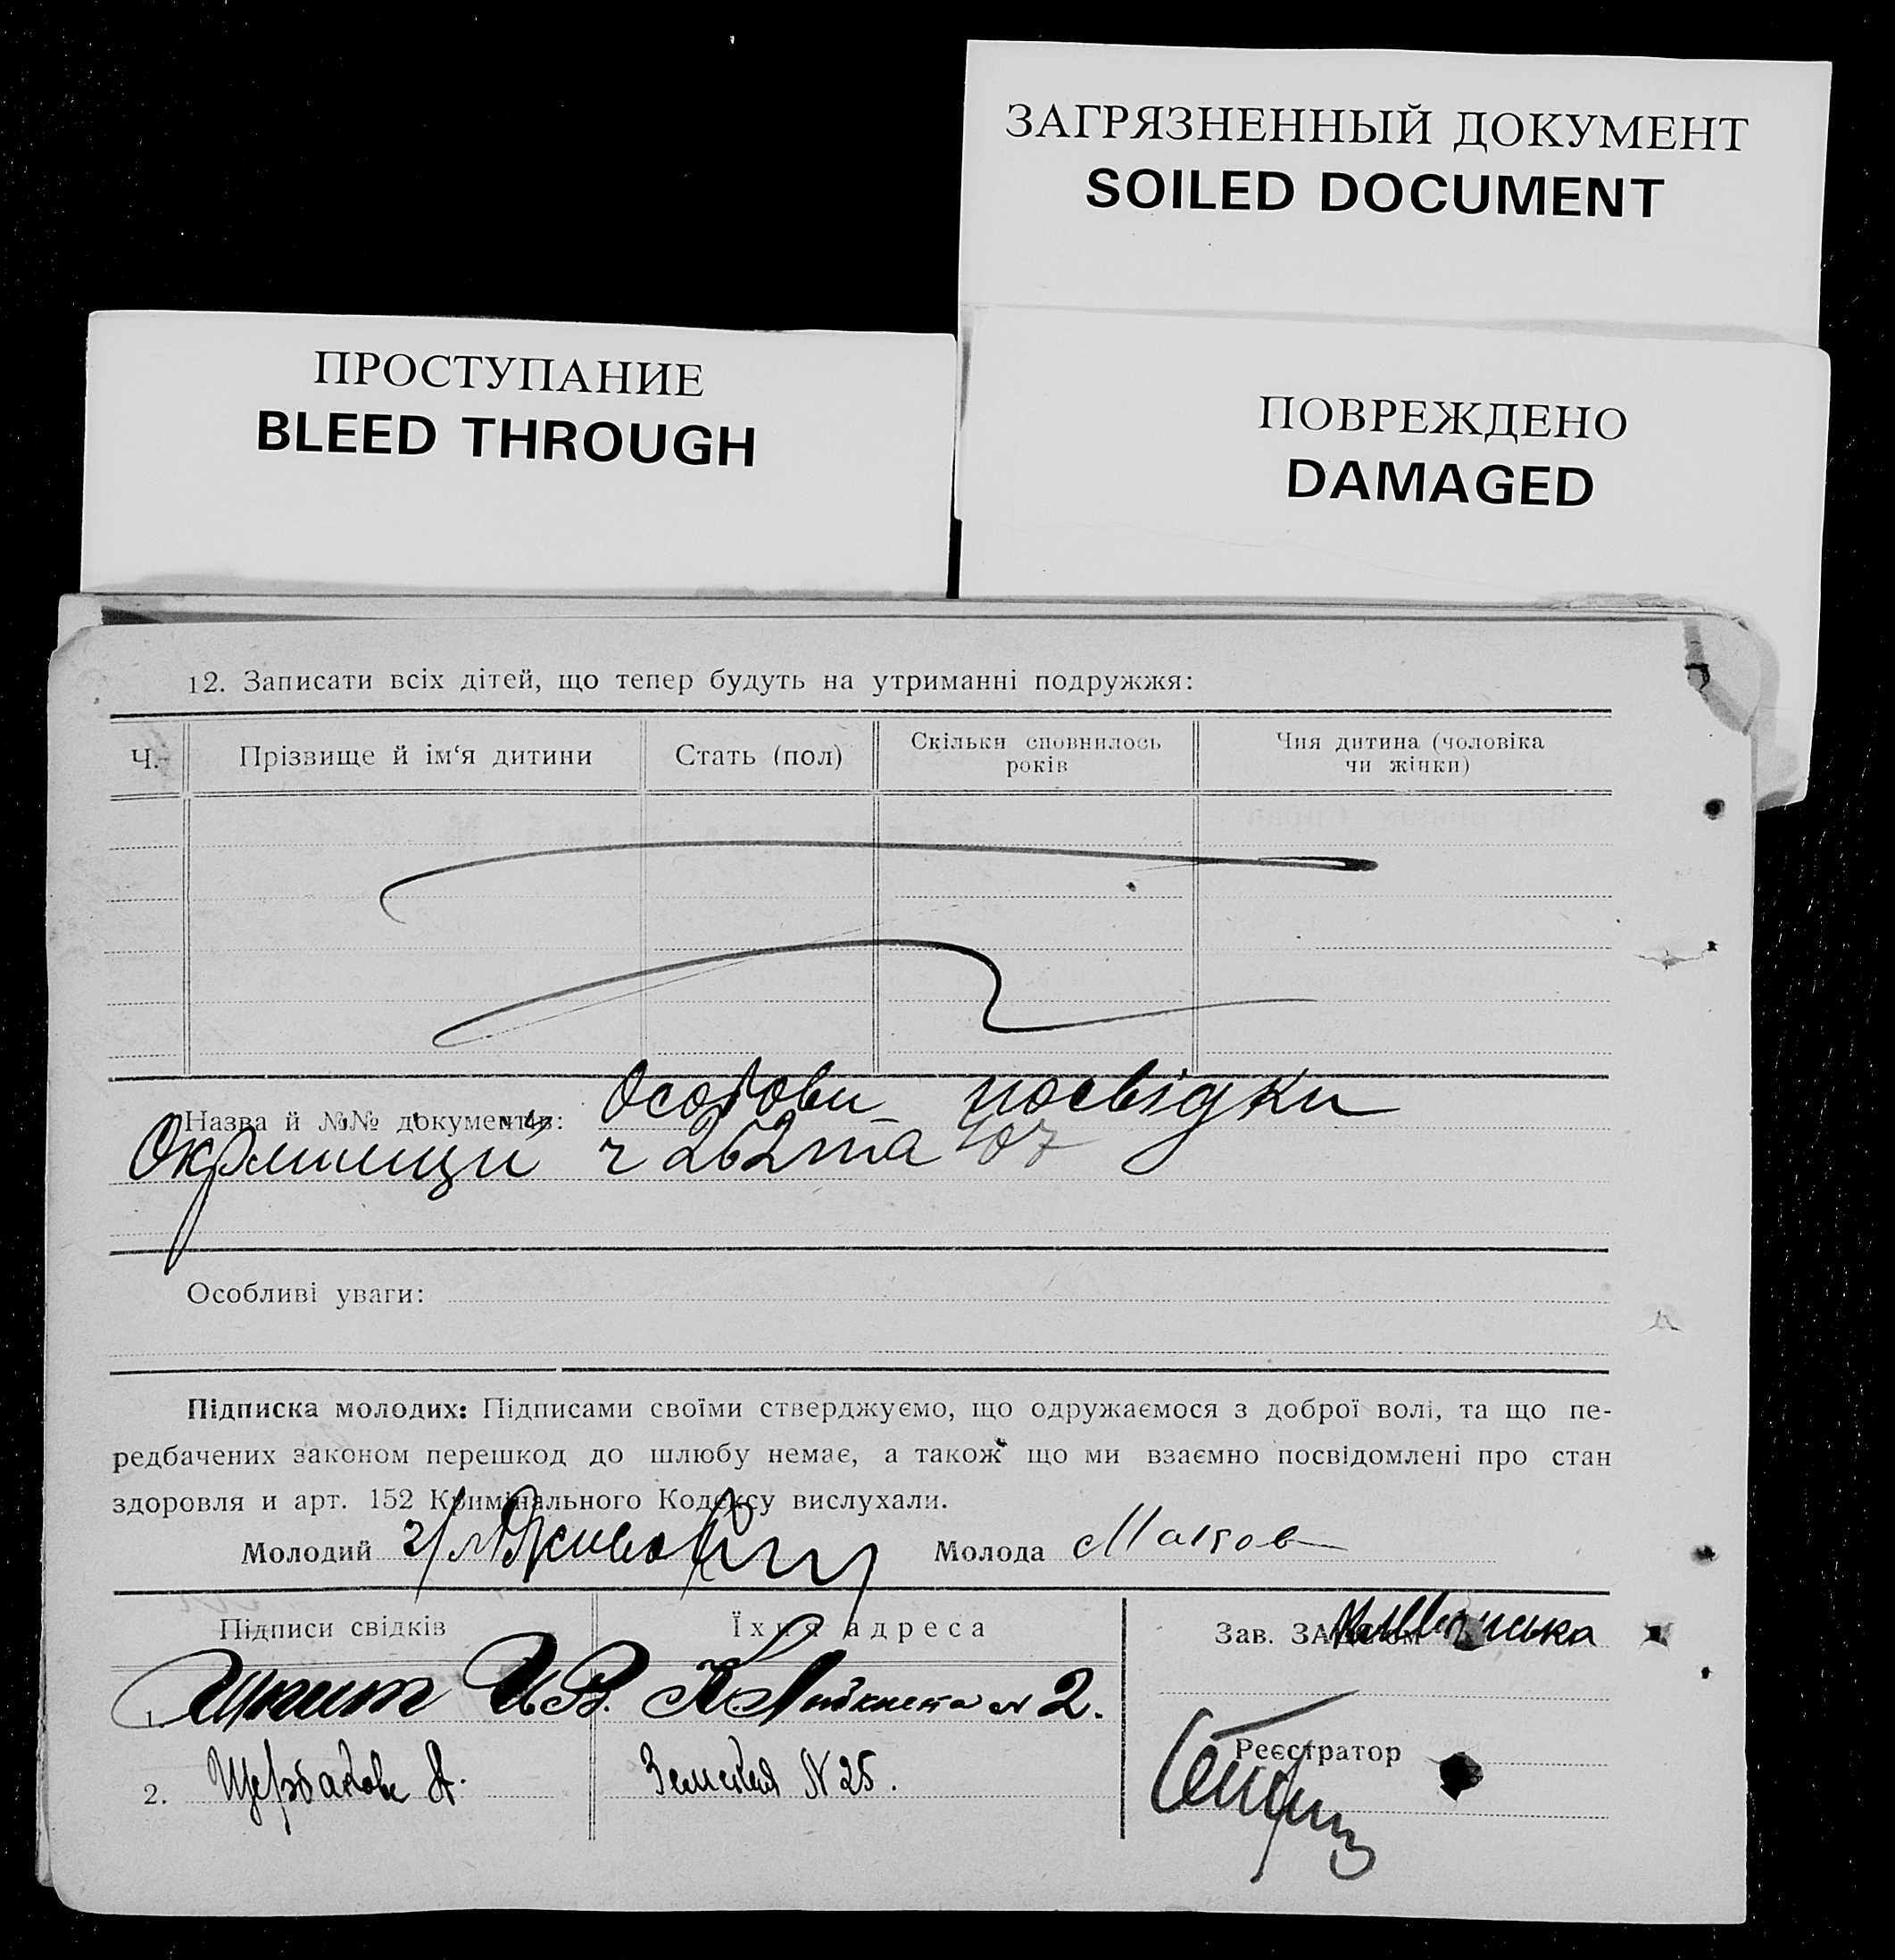 ЗАГРЯЗНЕННЫЙ ДОКУМЕНТ
SOILED DOCUMENT
ПРОСТУПАНИЕ
BLEED THROUGH
ПОВРЕЖДЕНО
DAMAGED
12. Записати всіх дітей, що тепер будуть на утриманні подружжя:
Ч. Прізвище й ім‘я дитини Стать (пол) Скільки сповнилось років Чия дитина (чоловіка чи жінки)
Назва й №№ документів: Особови посвідки
Окрміліції ч 262 та 107
Особливі уваги:
Підписка молодих: Підписами своїми стверджуємо, що одружаємося з доброї волі, та що пе-
редбачених законом перешкод до шлюбу немає, а також що ми взаємно посвідомлені про стан
здоровля и арт. 152 Кримінального Кодексу вислухали.
Молодий Молода
Підписи свідків Їхня адреса Зав. ЗАГС'ом
1. № 2.
Реєстратор
2. Щербакова А. Земская № 25.